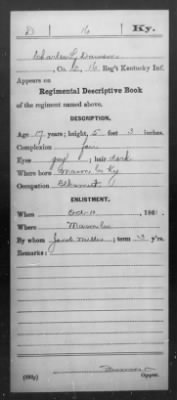 D 16 Ky.
Charles L
, Co. D, 16 Reg't Kentucky Inf.
Appears on
Regimental Descriptive Book
of the regiment named above.
DESCRIPTION.
Age 17 years; height, 5 feet 3 inches.
Complexion fair
Eyes gray; hair dark
Where born Mason Co Ky
Occupation
ENLISTMENT.
When Oct 10, 186
Where
By whom Jacob Miller; term 3 y'rs.
Remarks:
(383g) Copyist.